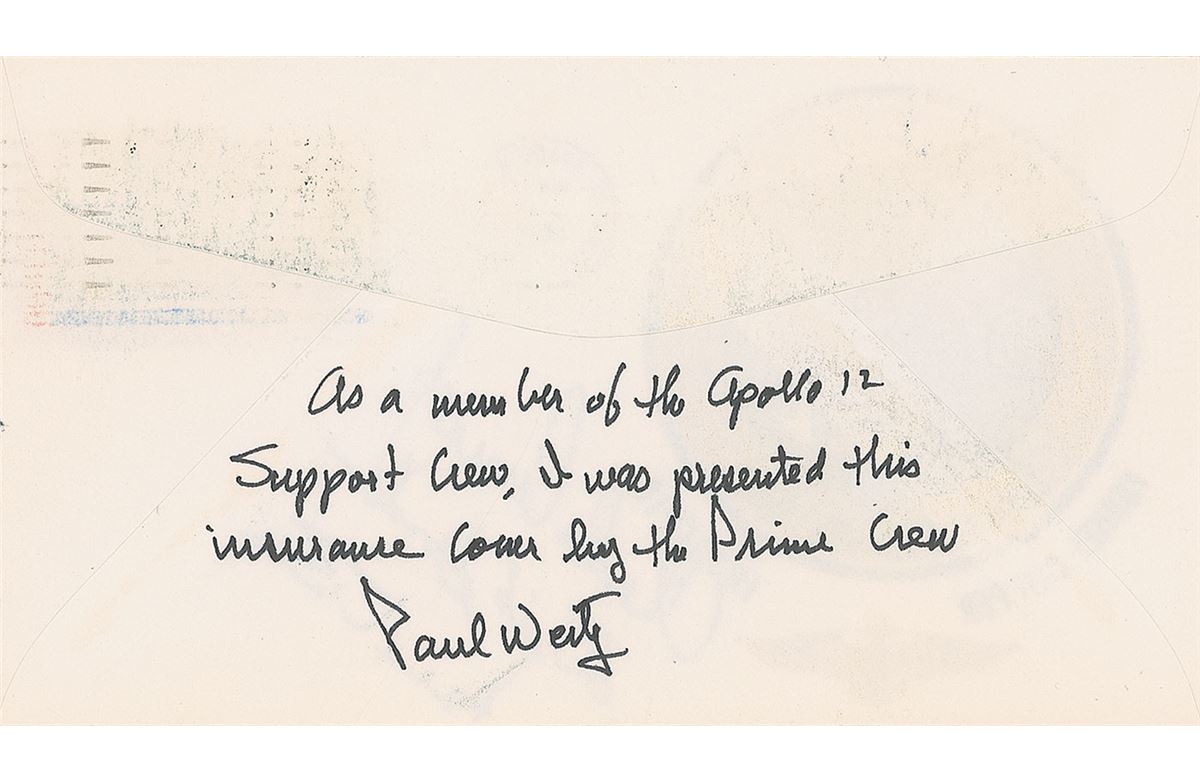 As a member of the Apollo 12
Support Crew, I was presented this
insurance cover by the Prime Crew
Paul Weitz